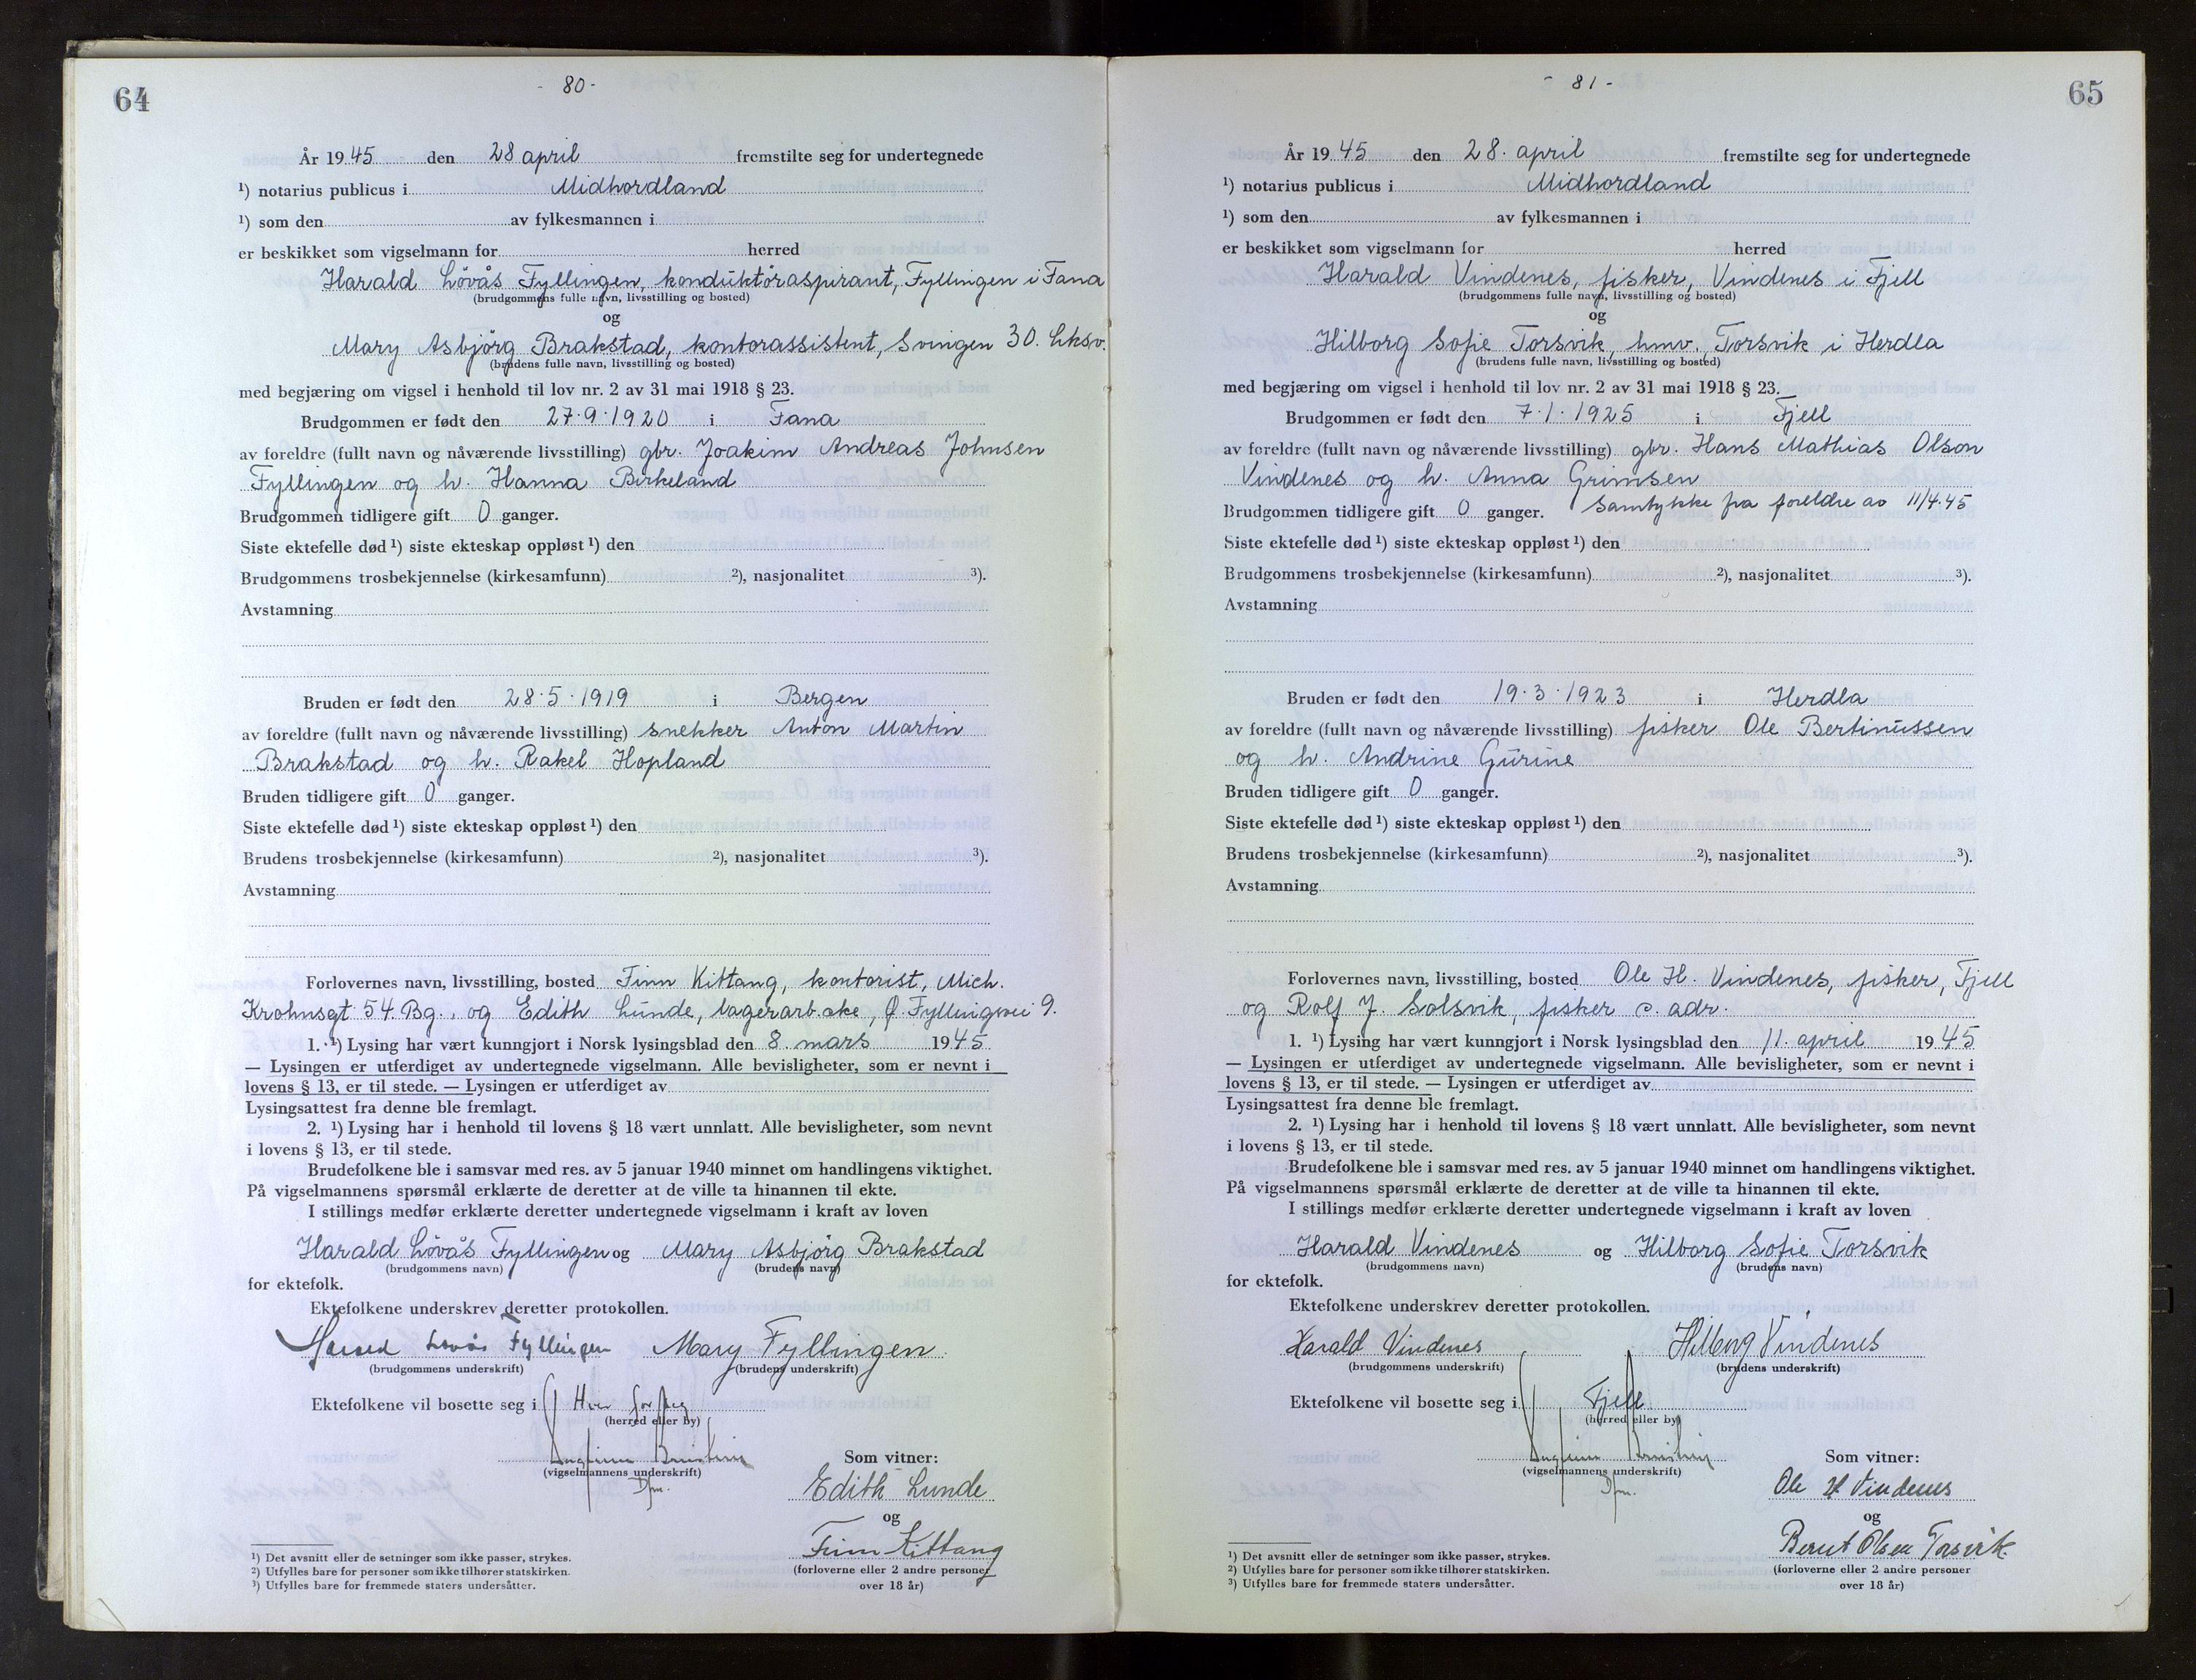 64
- 80 -
År 1945 den 28 april fremstilte seg for undertegnede
¹) notarius publicus i Midhordland
¹) som den av fylkesmannen i
er beskikket som vigselmann for herred
Harald Lövås Fyllingen, konduktöraspirant, Fyllingen i Fana
(brudgommens fulle navn, livsstilling og bosted)
og
Mary Asbjörg Brakstad, kontorassistent, Svingen 30. Lksv.
(brudens fulle navn, livsstilling og bosted)
med begjæring om vigsel i henhold til lov nr. 2 av 31 mai 1918 § 23.
Brudgommen er født den 27.9.1920 i Fana
av foreldre (fullt navn og nåværende livsstilling) gbr. Joakim Andreas Johnsen
Fyllingen og h. Hanna Birkeland
Brudgommen tidligere gift 0 ganger.
Siste ektefelle død ¹) siste ekteskap oppløst ¹) den
Brudgommens trosbekjennelse (kirkesamfunn) ²), nasjonalitet ³).
Avstamning
Bruden er født den 28.5.1919 i Bergen
av foreldre (fullt navn og nåværende livsstilling) snekker Anton Martin
Brakstad og h. Rakel Hopland
Bruden tidligere gift 0 ganger.
Siste ektefelle død ¹) siste ekteskap oppløst ¹) den
Brudens trosbekjennelse (kirkesamfunn) ²), nasjonalitet ³).
Avstamning
Forlovernes navn, livsstilling, bosted Finn Kittang, kontorist, Mich.
Krohnsgt 54. Bg., og Edith Lunde, lagerarb.ske, Ø. Fyllingvei 9.
1. ¹) Lysing har vært kunngjort i Norsk lysingsblad den 8. mars 1945
— Lysingen er utferdiget av undertegnede vigselmann. Alle bevisligheter, som er nevnt i
lovens § 13, er til stede. — Lysingen er utferdiget av
Lysingsattest fra denne ble fremlagt.
2. ¹) Lysing har i henhold til lovens § 18 vært unnlatt. Alle bevisligheter, som nevnt
i lovens § 13, er til stede.
Brudefolkene ble i samsvar med res. av 5 januar 1940 minnet om handlingens viktighet.
På vigselmannens spørsmål erklærte de deretter at de ville ta hinannen til ekte.
I stillings medfør erklærte deretter undertegnede vigselmann i kraft av loven
Harald Lövås Fyllingen og Mary Asbjörg Brakstad
(brudgommens navn) (brudens navn)
for ektefolk.
Ektefolkene underskrev deretter protokollen.
Harald Løvås Fyllingen Mary Fyllingen
(brudgommens underskrift) (brudens underskrift)
Ektefolkene vil bosette seg i Hver for seg
(herred eller by)
(vigselmannens underskrift)
Dfm.
Som vitner:
Edith Lunde
og
Finn Kittang
(forloverne eller 2 andre personer
over 18 år)
¹) Det avsnitt eller de setninger som ikke passer, strykes.
²) Utfylles bare for personer som ikke tilhører statskirken.
³) Utfylles bare for fremmede staters undersåtter.
65
- 81 -
År 1945 den 28. april fremstilte seg for undertegnede
¹) notarius publicus i Midhordland
¹) som den av fylkesmannen i
er beskikket som vigselmann for herred
Harald Vindenes, fisker, Vindenes i Fjell
(brudgommens fulle navn, livsstilling og bosted)
og
Hilborg Sofie Torsvik, hmv., Torsvik i Herdla
(brudens fulle navn, livsstilling og bosted)
med begjæring om vigsel i henhold til lov nr. 2 av 31 mai 1918 § 23.
Brudgommen er født den 7.1.1925 i Fjell
av foreldre (fullt navn og nåværende livsstilling) gbr. Hans Mathias Olson
Vindenes og h. Anna Grimsen
Brudgommen tidligere gift 0 ganger. Samtykke fra foreldre av 11/4.45
Siste ektefelle død ¹) siste ekteskap oppløst ¹) den
Brudgommens trosbekjennelse (kirkesamfunn) ²), nasjonalitet ³).
Avstamning
Bruden er født den 19.3.1923 i Herdla
av foreldre (fullt navn og nåværende livsstilling) fisker Ole Bertinussen
og h. Andrine Gurine
Bruden tidligere gift 0 ganger.
Siste ektefelle død ¹) siste ekteskap oppløst ¹) den
Brudens trosbekjennelse (kirkesamfunn) ²), nasjonalitet ³).
Avstamning
Forlovernes navn, livsstilling, bosted Ole H. Vindenes, fisker, Fjell
og Rolf J. Solsvik, fisker s. adr.
1. ¹) Lysing har vært kunngjort i Norsk lysingsblad den 11. april 1945
— Lysingen er utferdiget av undertegnede vigselmann. Alle bevisligheter, som er nevnt i
lovens § 13, er til stede. — Lysingen er utferdiget av
Lysingsattest fra denne ble fremlagt.
2. ¹) Lysing har i henhold til lovens § 18 vært unnlatt. Alle bevisligheter, som nevnt
i lovens § 13, er til stede.
Brudefolkene ble i samsvar med res. av 5 januar 1940 minnet om handlingens viktighet.
På vigselmannens spørsmål erklærte de deretter at de ville ta hinannen til ekte.
I stillings medfør erklærte deretter undertegnede vigselmann i kraft av loven
Harald Vindenes og Hilborg Sofie Torsvik
(brudgommens navn) (brudens navn)
for ektefolk.
Ektefolkene underskrev deretter protokollen.
Harald Vindenes Hilborg Vindenes
(brudgommens underskrift) (brudens underskrift)
Ektefolkene vil bosette seg i Fjell
(herred eller by)
(vigselmannens underskrift)
Dfm.
Som vitner:
Ole H Vindenes
og
Bernt Olsen Torsvik
(forloverne eller 2 andre personer
over 18 år)
¹) Det avsnitt eller de setninger som ikke passer, strykes.
²) Utfylles bare for personer som ikke tilhører statskirken.
³) Utfylles bare for fremmede staters undersåtter.